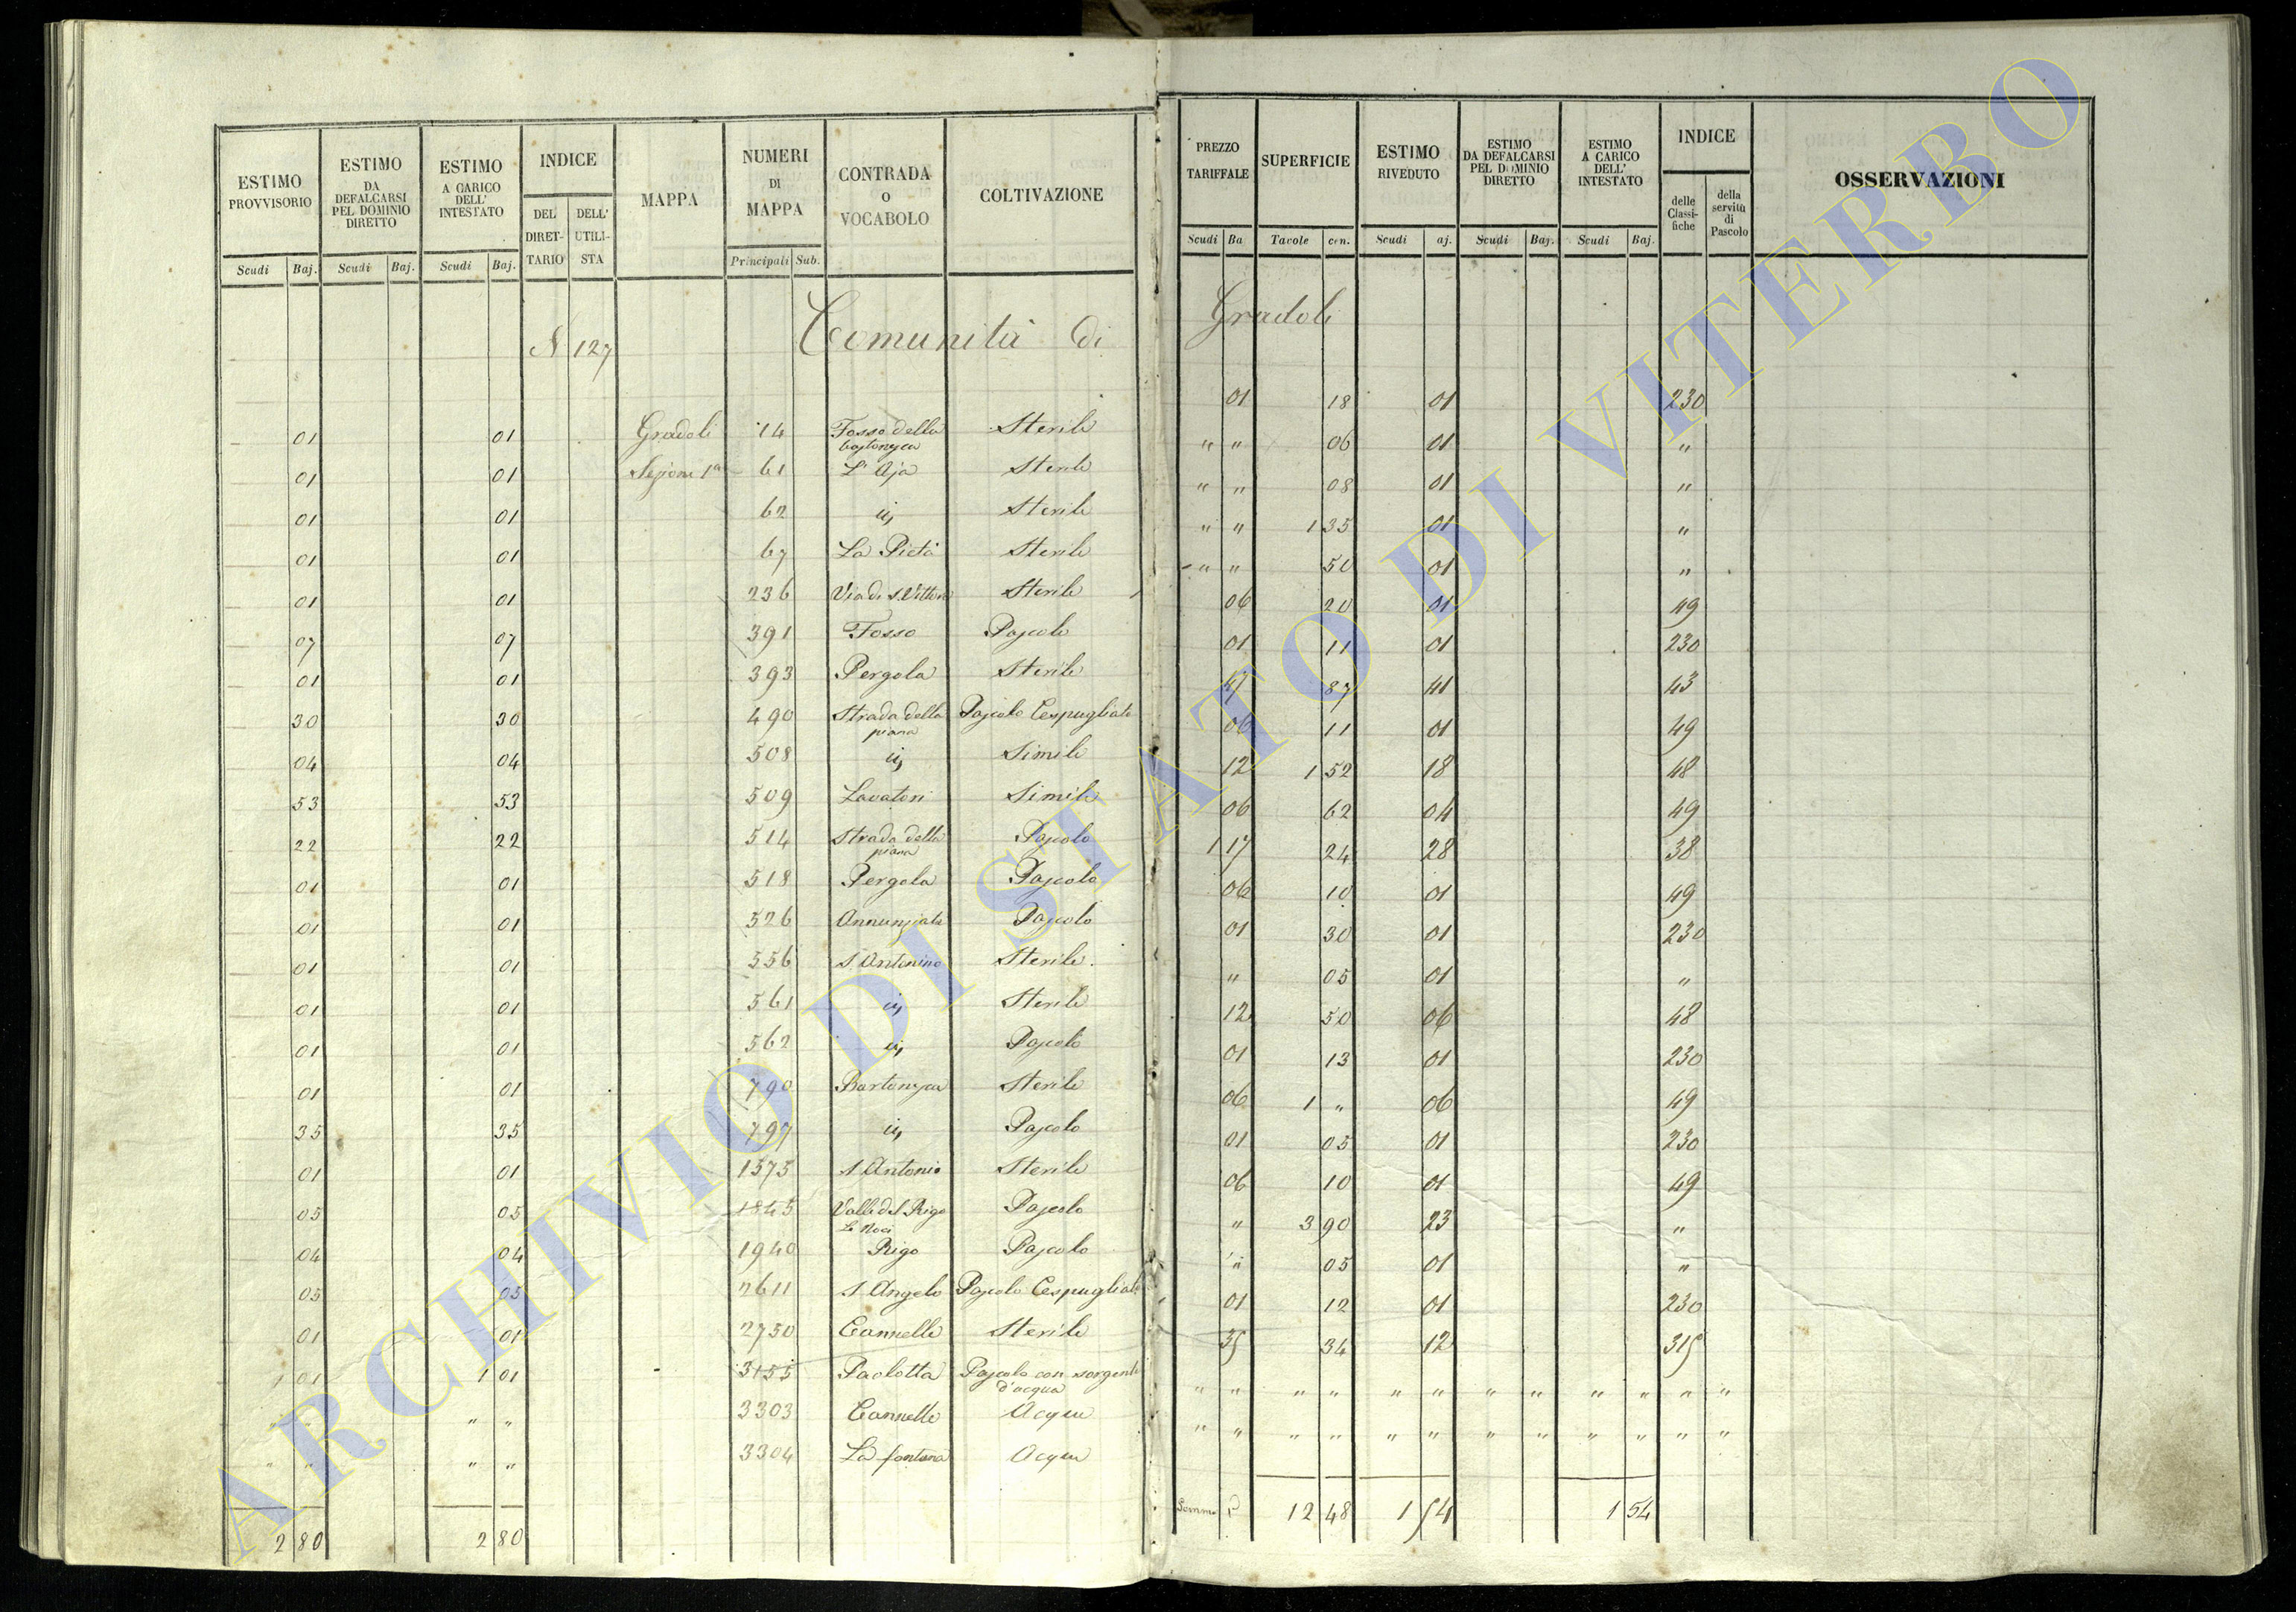 ESTIMO PROVVISORIO | ESTIMO DA DEFALCARSI PEL DOMINIO DIRETTO | ESTIMO A CARICO DELL' INTESTATO | INDICE | MAPPA | NUMERI DI MAPPA | CONTRADA O VOCABOLO | COLTIVAZIONE
DEL DIRETTARIO | DELL' UTILISTA
Scudi | Baj. | Scudi | Baj. | Scudi | Baj. | Principali | Sub.
N 127 Comunità di
01 | 01 | Gradoli | 14 | Fosso della | Sterile
01 | 01 | Sezione 1a | 61 | L'Aja | Sterile
01 | 01 | 62 | iij | Sterile
01 | 01 | 67 | La Pietà | Sterile
01 | 01 | 236 | Via di S. Vittore | Sterile
07 | 07 | 391 | Fosso | Pascolo
01 | 01 | 393 | Pergola | Sterile
30 | 30 | 490 | Strada della piana | Pascolo Cespugliato
04 | 04 | 508 | iij | Simile
53 | 53 | 509 | Lavatori | Simile
22 | 22 | 514 | Strada della piana | Pascolo
01 | 01 | 518 | Pergola | Pascolo
01 | 01 | 526 | Annunziata | Pascolo
01 | 01 | 556 | S. Antonino | Sterile
01 | 01 | 561 | iij | Sterile
01 | 01 | 562 | iij | Pascolo
01 | 01 | 790 | Bartonzca | Sterile
35 | 35 | 797 | iij | Pascolo
01 | 01 | 1575 | S. Antonio | Sterile
05 | 05 | 1845 | Valle del Rigo Le Noci | Pascolo
04 | 04 | 1940 | Rigo | Pascolo
05 | 05 | 2611 | S. Angelo | Pascolo Cespugliato
01 | 01 | 2750 | Cannelle | Sterile
1 | 01 | 1 | 01 | 3155 | Paolotta | Pascolo con sorgente d'acqua
" | " | " | " | 3303 | Cannelle | Acqua
" | " | " | " | 3304 | La fontana | Acqua
2 | 80 | 2 | 80
PREZZO TARIFFALE | SUPERFICIE | ESTIMO RIVEDUTO | ESTIMO DA DEFALCARSI PEL DOMINIO DIRETTO | ESTIMO A CARICO DELL' INTESTATO | INDICE | OSSERVAZIONI
delle Classifiche | della servitù di Pascolo
Scudi | Ba | Tavole | cen. | Scudi | aj. | Scudi | Baj. | Scudi | Baj.
Gradoli
01 | 18 | 01 | 230
" | " | 06 | 01 | "
" | " | 08 | 01 | "
" | " | 1 | 35 | 01 | "
" | " | 50 | 01 | "
06 | 20 | 01 | 49
01 | 11 | 01 | 230
47 | 87 | 41 | 43
06 | 11 | 01 | 49
12 | 1 | 52 | 18 | 48
06 | 62 | 04 | 49
1 | 17 | 24 | 28 | 38
06 | 10 | 01 | 49
01 | 30 | 01 | 230
" | 05 | 01 | "
12 | 50 | 06 | 48
01 | 13 | 01 | 230
06 | 1 | " | 06 | 49
01 | 05 | 01 | 230
06 | 10 | 01 | 49
" | 3 | 90 | 23 | "
" | 05 | 01 | "
01 | 12 | 01 | 230
35 | 34 | 12 | 315
" | " | " | " | " | " | " | " | " | " | " | "
" | " | " | " | " | " | " | " | " | " | " | "
Somma | 12 | 48 | 1 | 54 | 1 | 54
ARCHIVIO DI STATO DI VITERBO